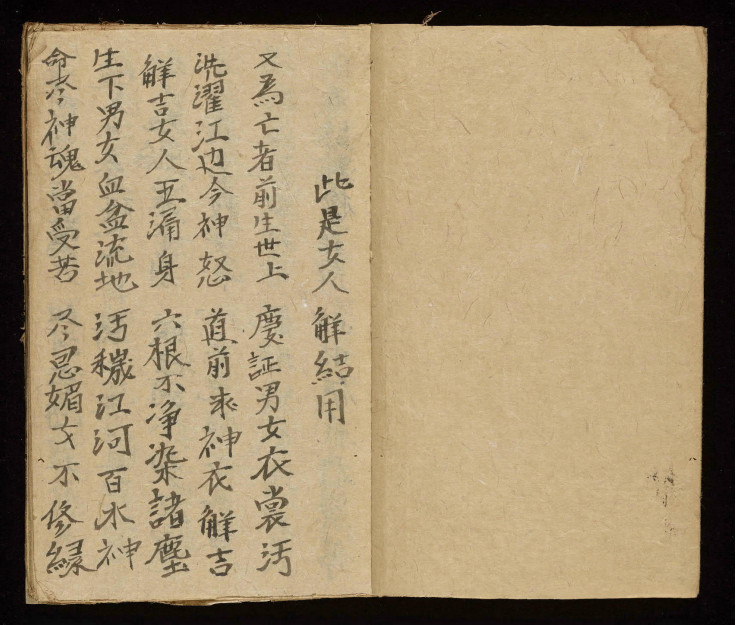 此是女人解結用
又為亡者前生世上 慶証男女衣裳汚
洗濯江边今神怒 直前求神衣解吉
解吉女人五漏身 六根不净染諸塵
生下男女血盆流地 汚穢江河百水神
命冷神魂當受苦 尽思媚女不修緣